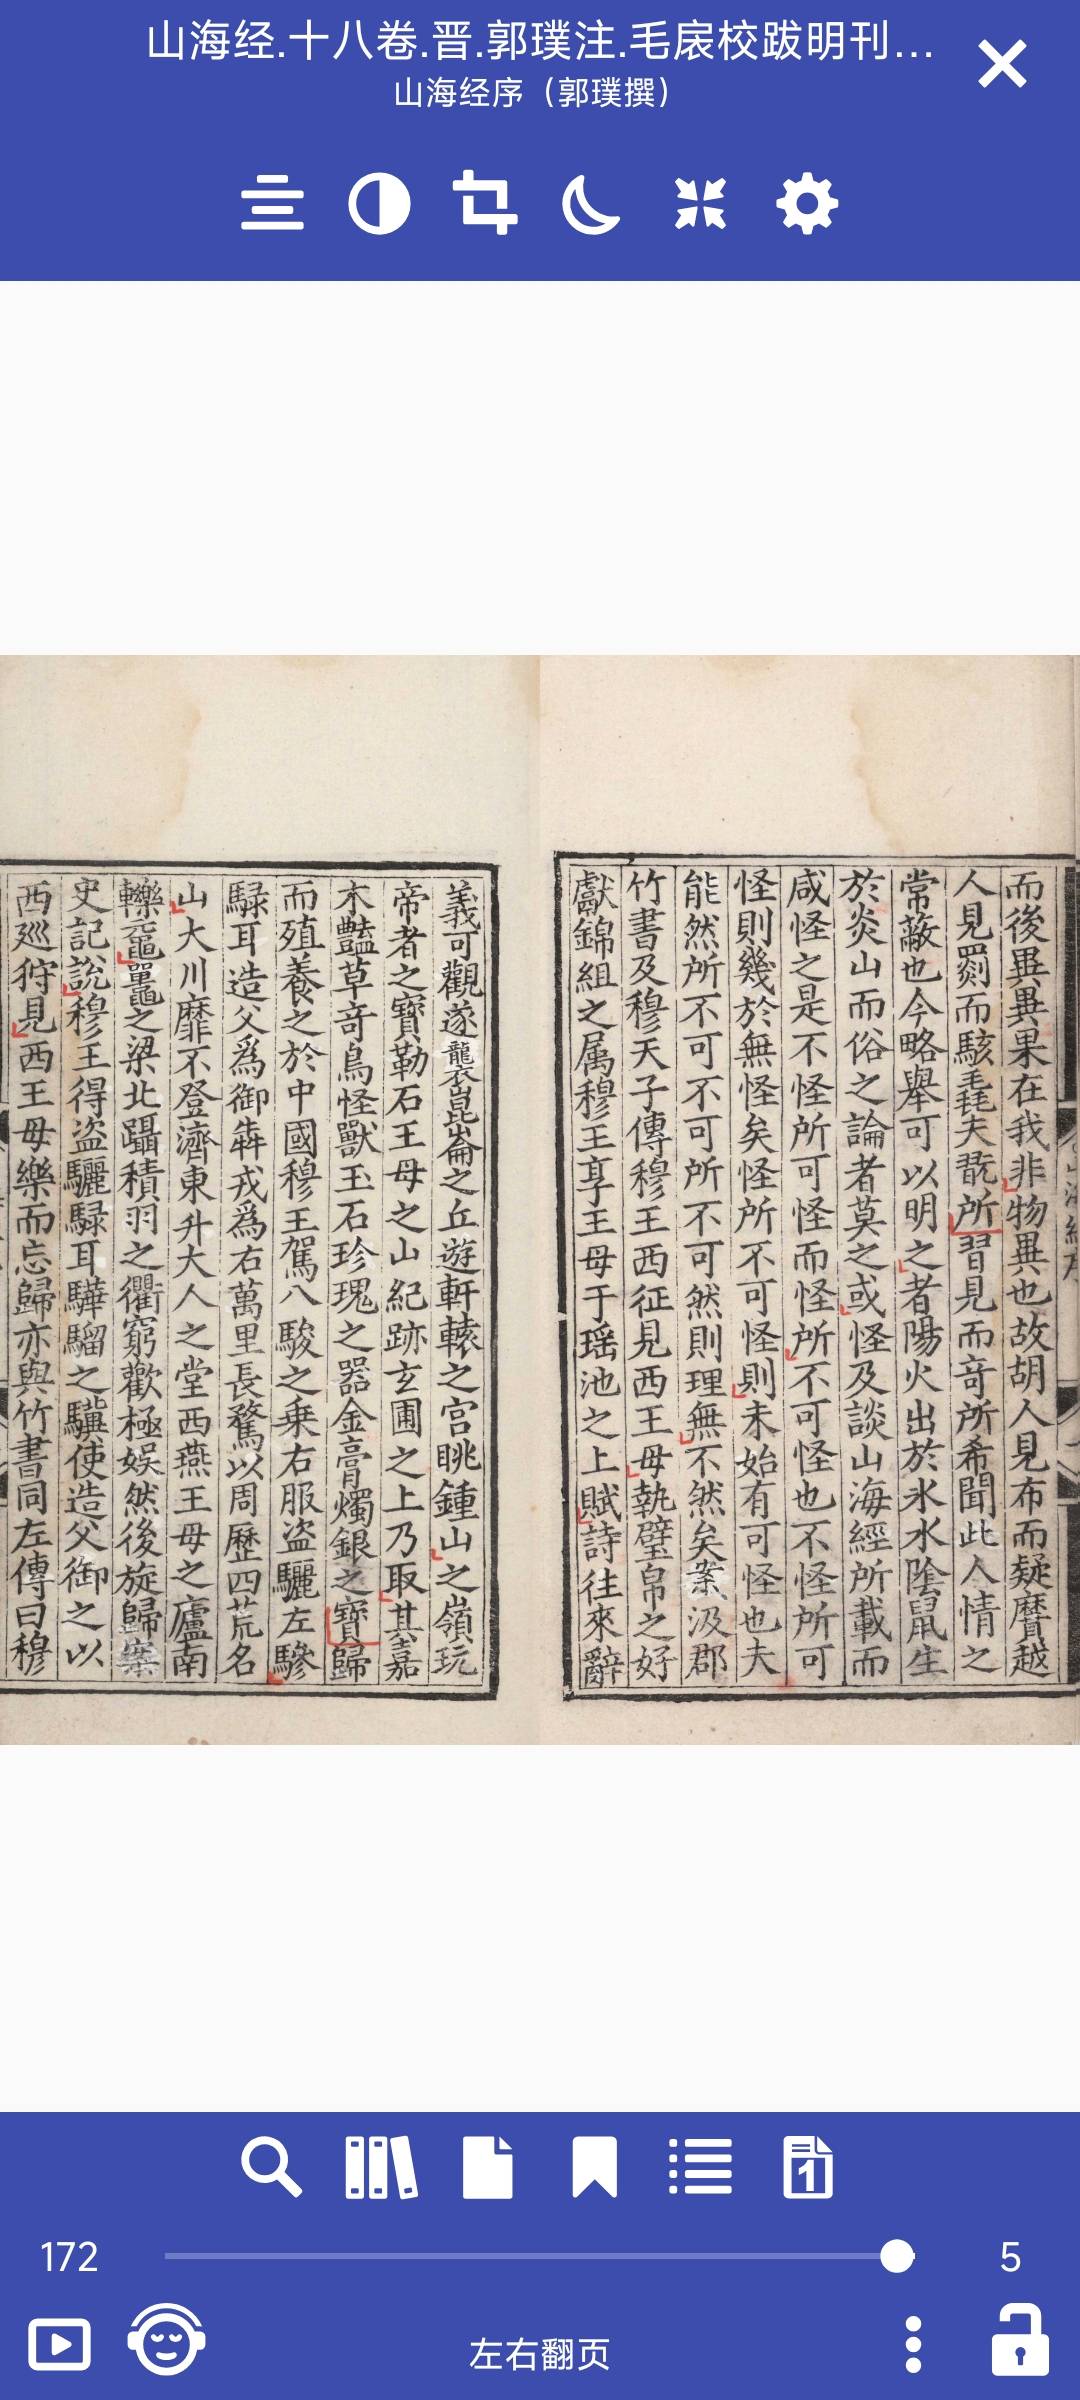 山海经.十八卷.晋.郭璞注.毛扆校跋明刊...
山海经序（郭璞撰）
而後異異果在我非物異也故胡人見布而疑黂越
人見罽而駭毳夫翫所習見而竒所希聞此人情之
常蔽也今略舉可以明之者陽火出於氷水隂鼠生
於炎山而俗之論者莫之或怪及談山海經所載而
咸怪之是不怪所可怪而怪所不可怪也不怪所可
怪則幾於無怪矣怪所不可怪則未始有可怪也夫
能然所不可不可所不可然則理無不然矣案汲郡
竹書及穆天子傳穆王西征見西王母執璧帛之好
獻錦組之属穆王享王母于瑶池之上賦詩往來辭
義可觀遂襲崑崙之丘遊軒轅之宮眺鍾山之嶺玩
帝者之寶勒石王母之山紀跡玄圃之上乃取其嘉
木豔草竒鳥怪獸玉石珍瑰之器金膏燭銀之寶歸
而殖養之於中國穆王駕八駿之乗右服盗驪左驂
騄耳造父爲御犇戎爲右萬里長騖以周歷四荒名
山大川靡不登濟東升大人之堂西燕王母之廬南
轢黿鼉之梁北躡積羽之衢窮歡極娱然後旋歸案
史記說穆王得盗驪騄耳驊騮之驥使造父御之以
西廵狩見西王母樂而忘歸亦與竹書同左傳曰穆
172
5
左右翻页